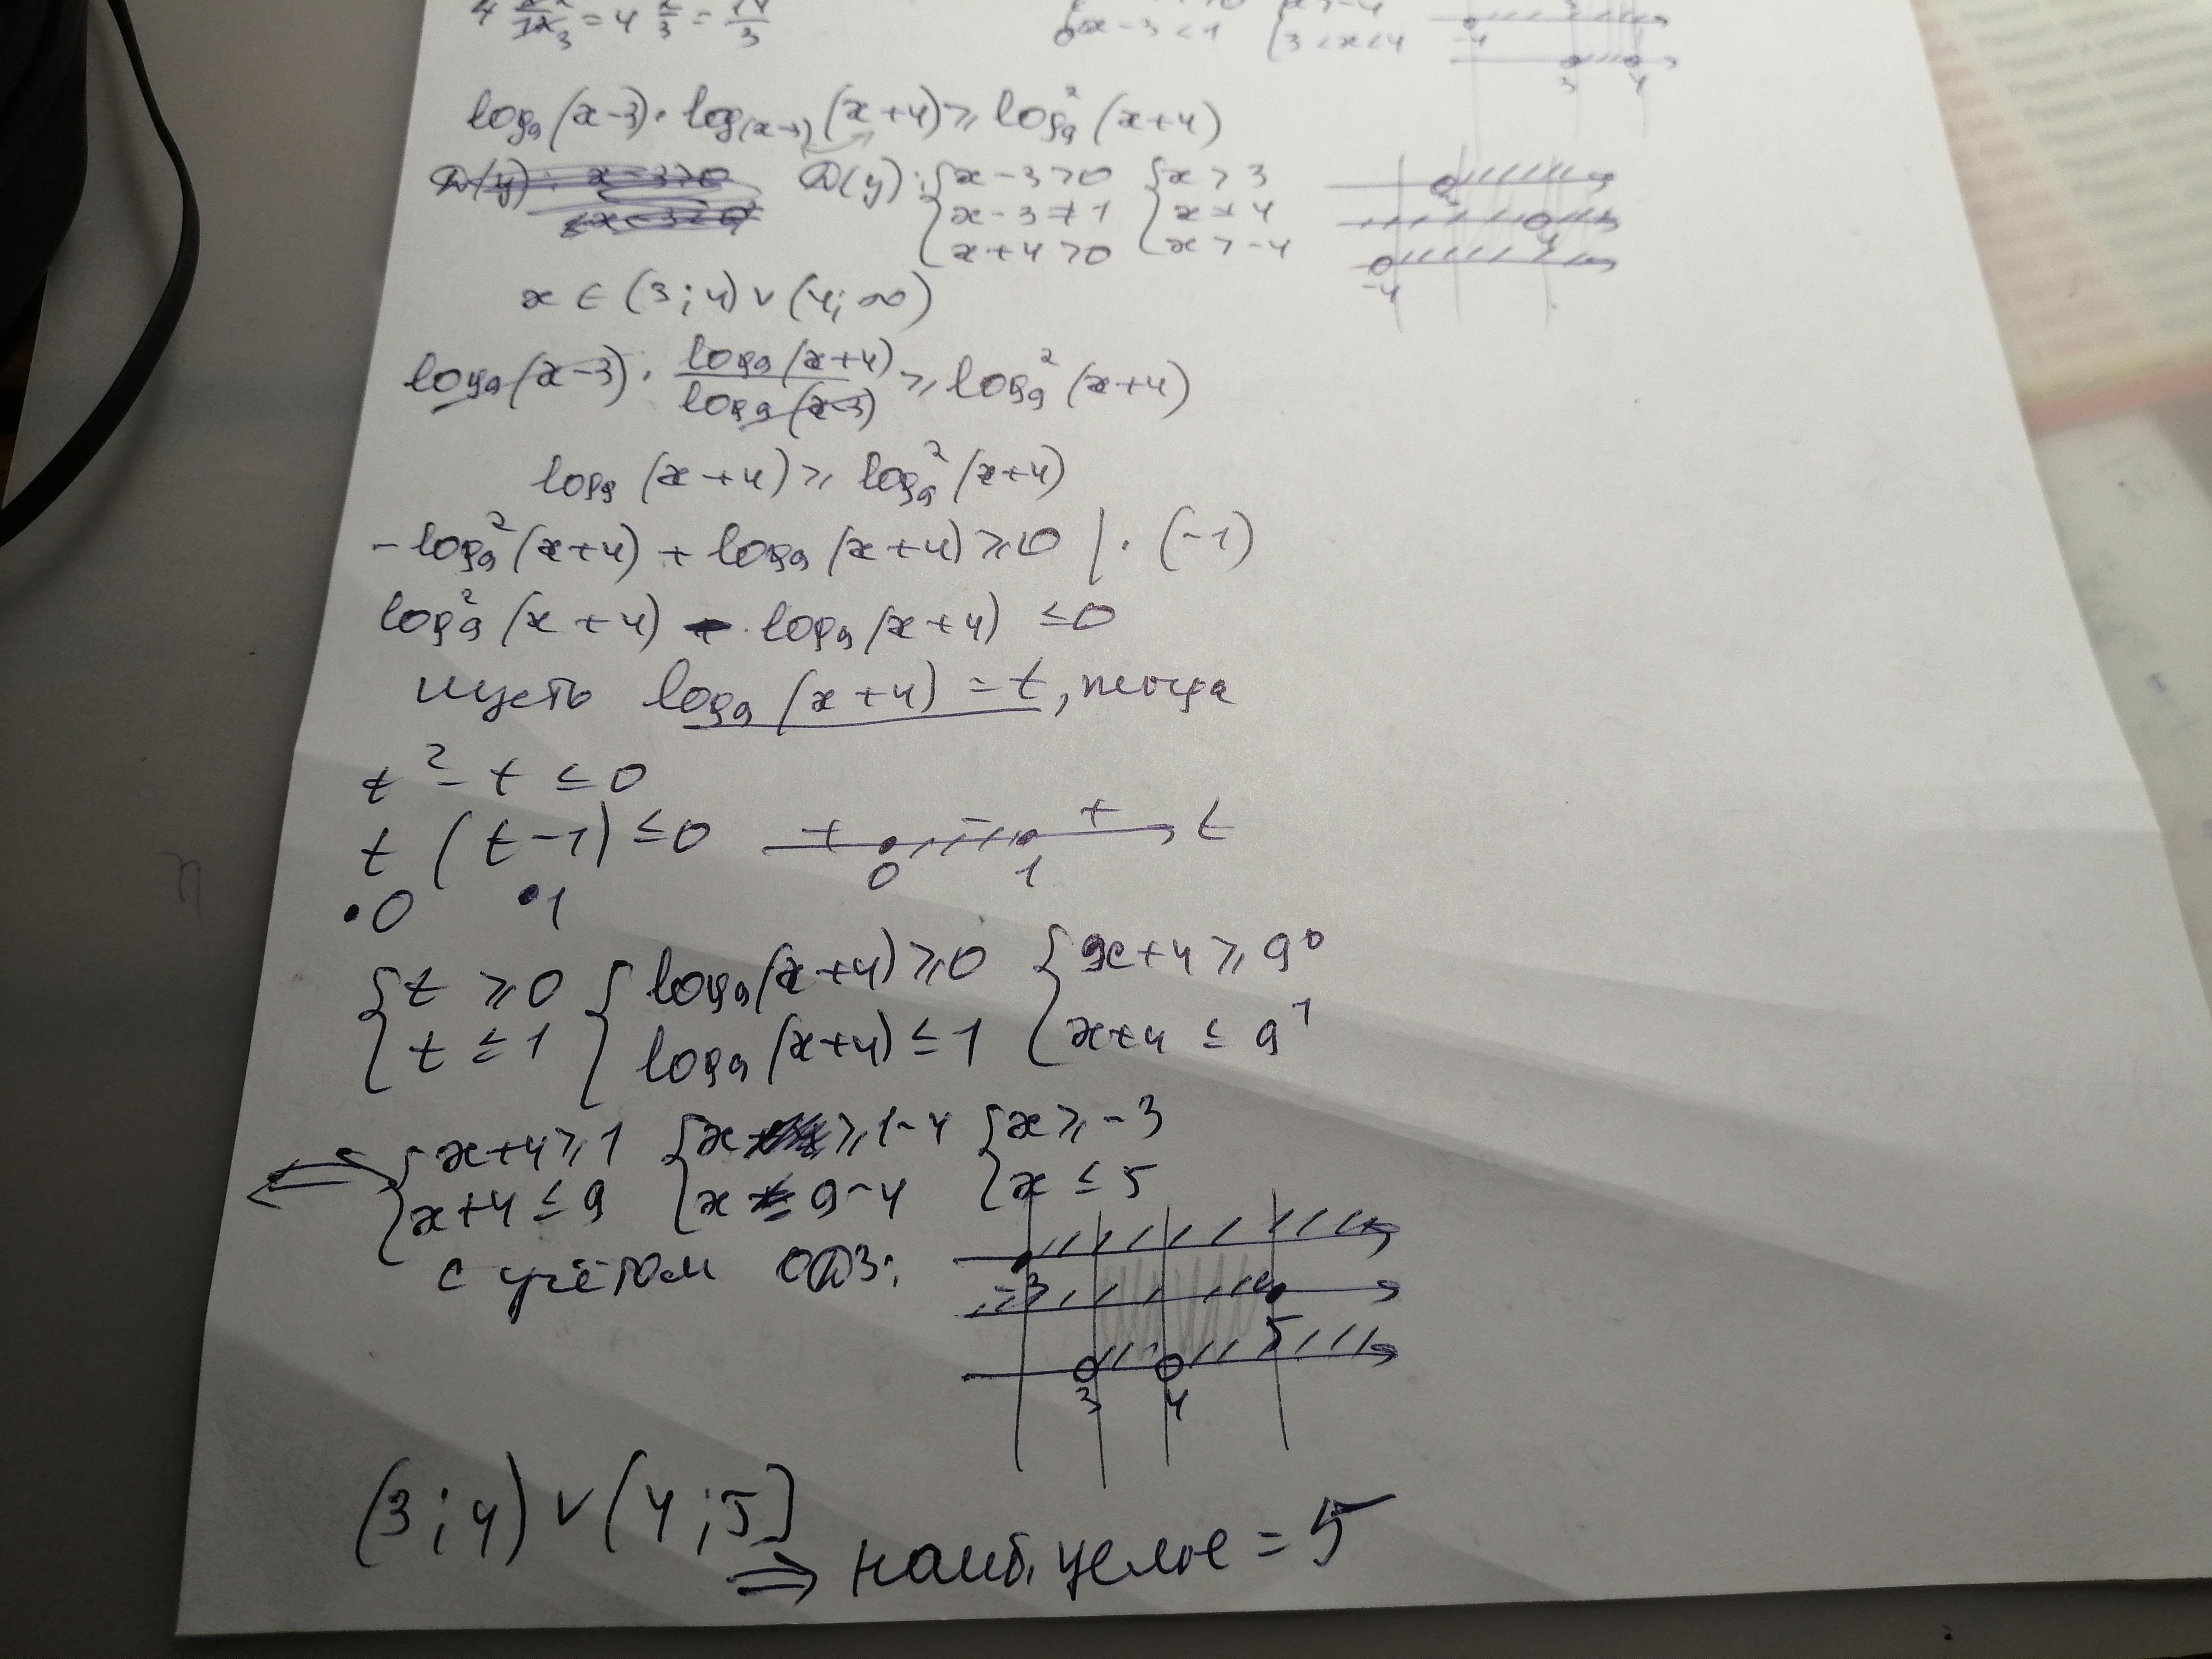 x-3<1 {3<x<4
-4
3 4
log₉(x-3)·log₍ₓ₋₃₎(x+4)≥log₉²(x+4)
D(y): {x-3>0 {x>3
x-3≠1 x≠4
x+4>0 x>-4
4
-4
x∈(3;4)∨(4;∞)
log₉(x-3)·log₉(x+4)/log₉(x-3)≥log₉²(x+4)
log₉(x+4)≥log₉²(x+4)
-log₉²(x+4)+log₉(x+4)≥0 |·(-1)
log₉²(x+4)-log₉(x+4)≤0
пусть log₉(x+4)=t, тогда
t²-t≤0
t(t-1)≤0 + - + t
0 1
·0 ·1
{t≥0 {log₉(x+4)≥0 {x+4≥9⁰
t≤1 log₉(x+4)≤1 x+4≤9¹
{x+4≥1 {x≥1-4 {x≥-3
x+4≤9 x≤9-4 x≤5
с учётом ОДЗ:
-3
5
3 4
(3;4)∨(4;5]
⇒ наиб. целое = 5